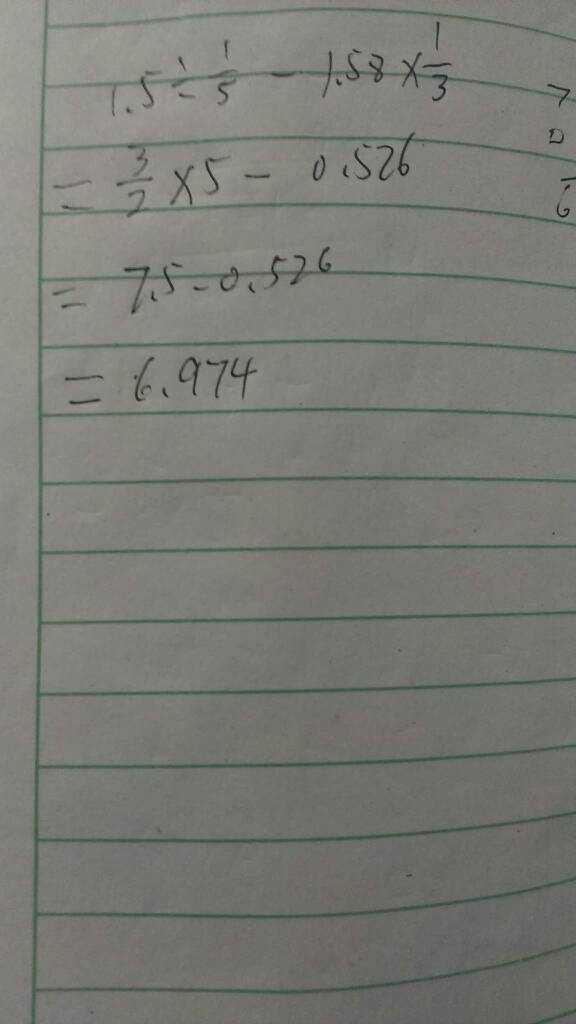 1.5 ÷ 1/5 - 1.58 × 1/3
= 3/2 × 5 - 0.526
= 7.5 - 0.526
= 6.974
7
0
6